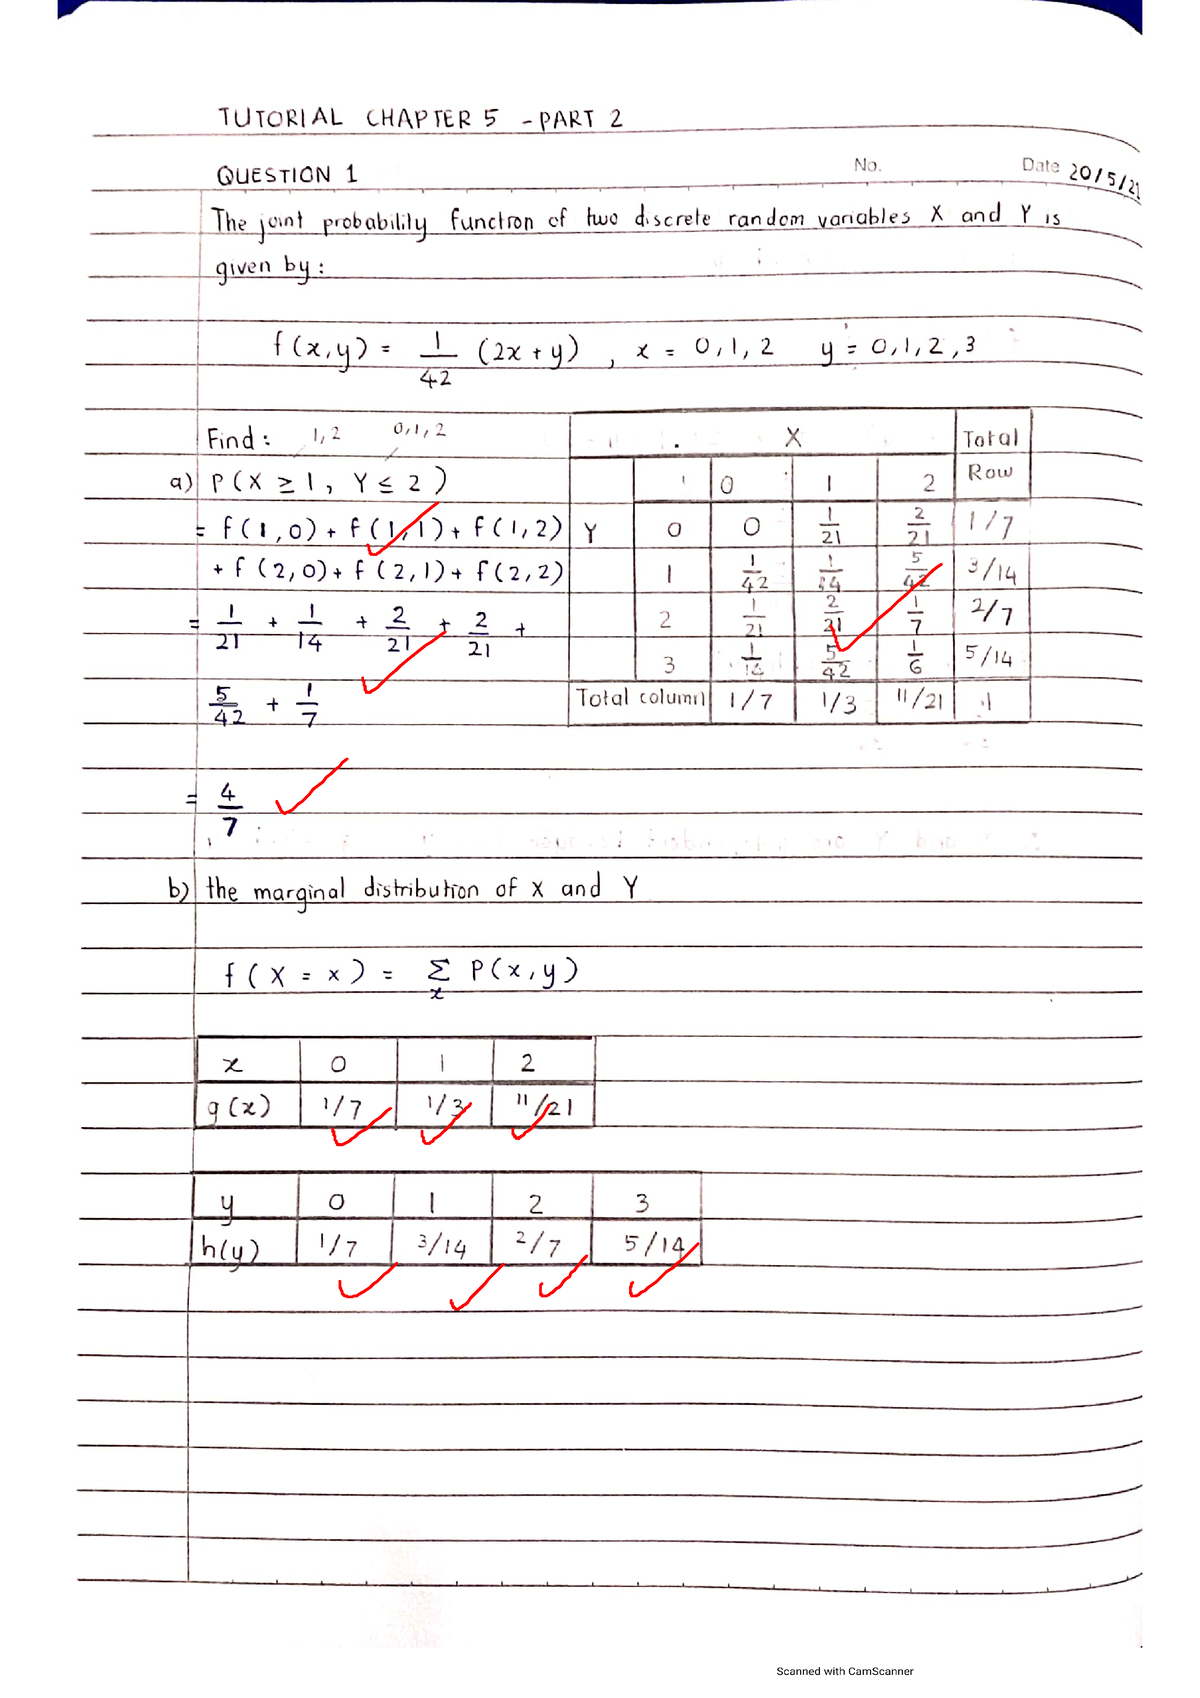 TUTORIAL CHAPTER 5 - PART 2
No. Date 20/5/21
QUESTION 1
The joint probability function of two discrete random variables X and Y is
given by :
f(x,y) = 1/42 (2x + y) , x = 0,1,2 y = 0,1,2,3
Find : 1,2 0,1,2
a) P(X ≥ 1, Y ≤ 2)
= f(1,0) + f(1,1) + f(1,2)
+ f(2,0) + f(2,1) + f(2,2)
= 1/21 + 1/14 + 2/21 + 2/21 +
5/42 + 1/7
= 4/7
X Total
0 1 2 Row
Y 0 0 1/21 2/21 1/7
1 1/42 1/14 5/42 3/14
2 1/21 2/21 1/7 2/7
3 1/14 5/42 1/6 5/14
Total column 1/7 1/3 11/21 1
b) the marginal distribution of X and Y
f(X = x) = Σ P(x,y)
x
x 0 1 2
g(x) 1/7 1/3 11/21
y 0 1 2 3
h(y) 1/7 3/14 2/7 5/14
Scanned with CamScanner